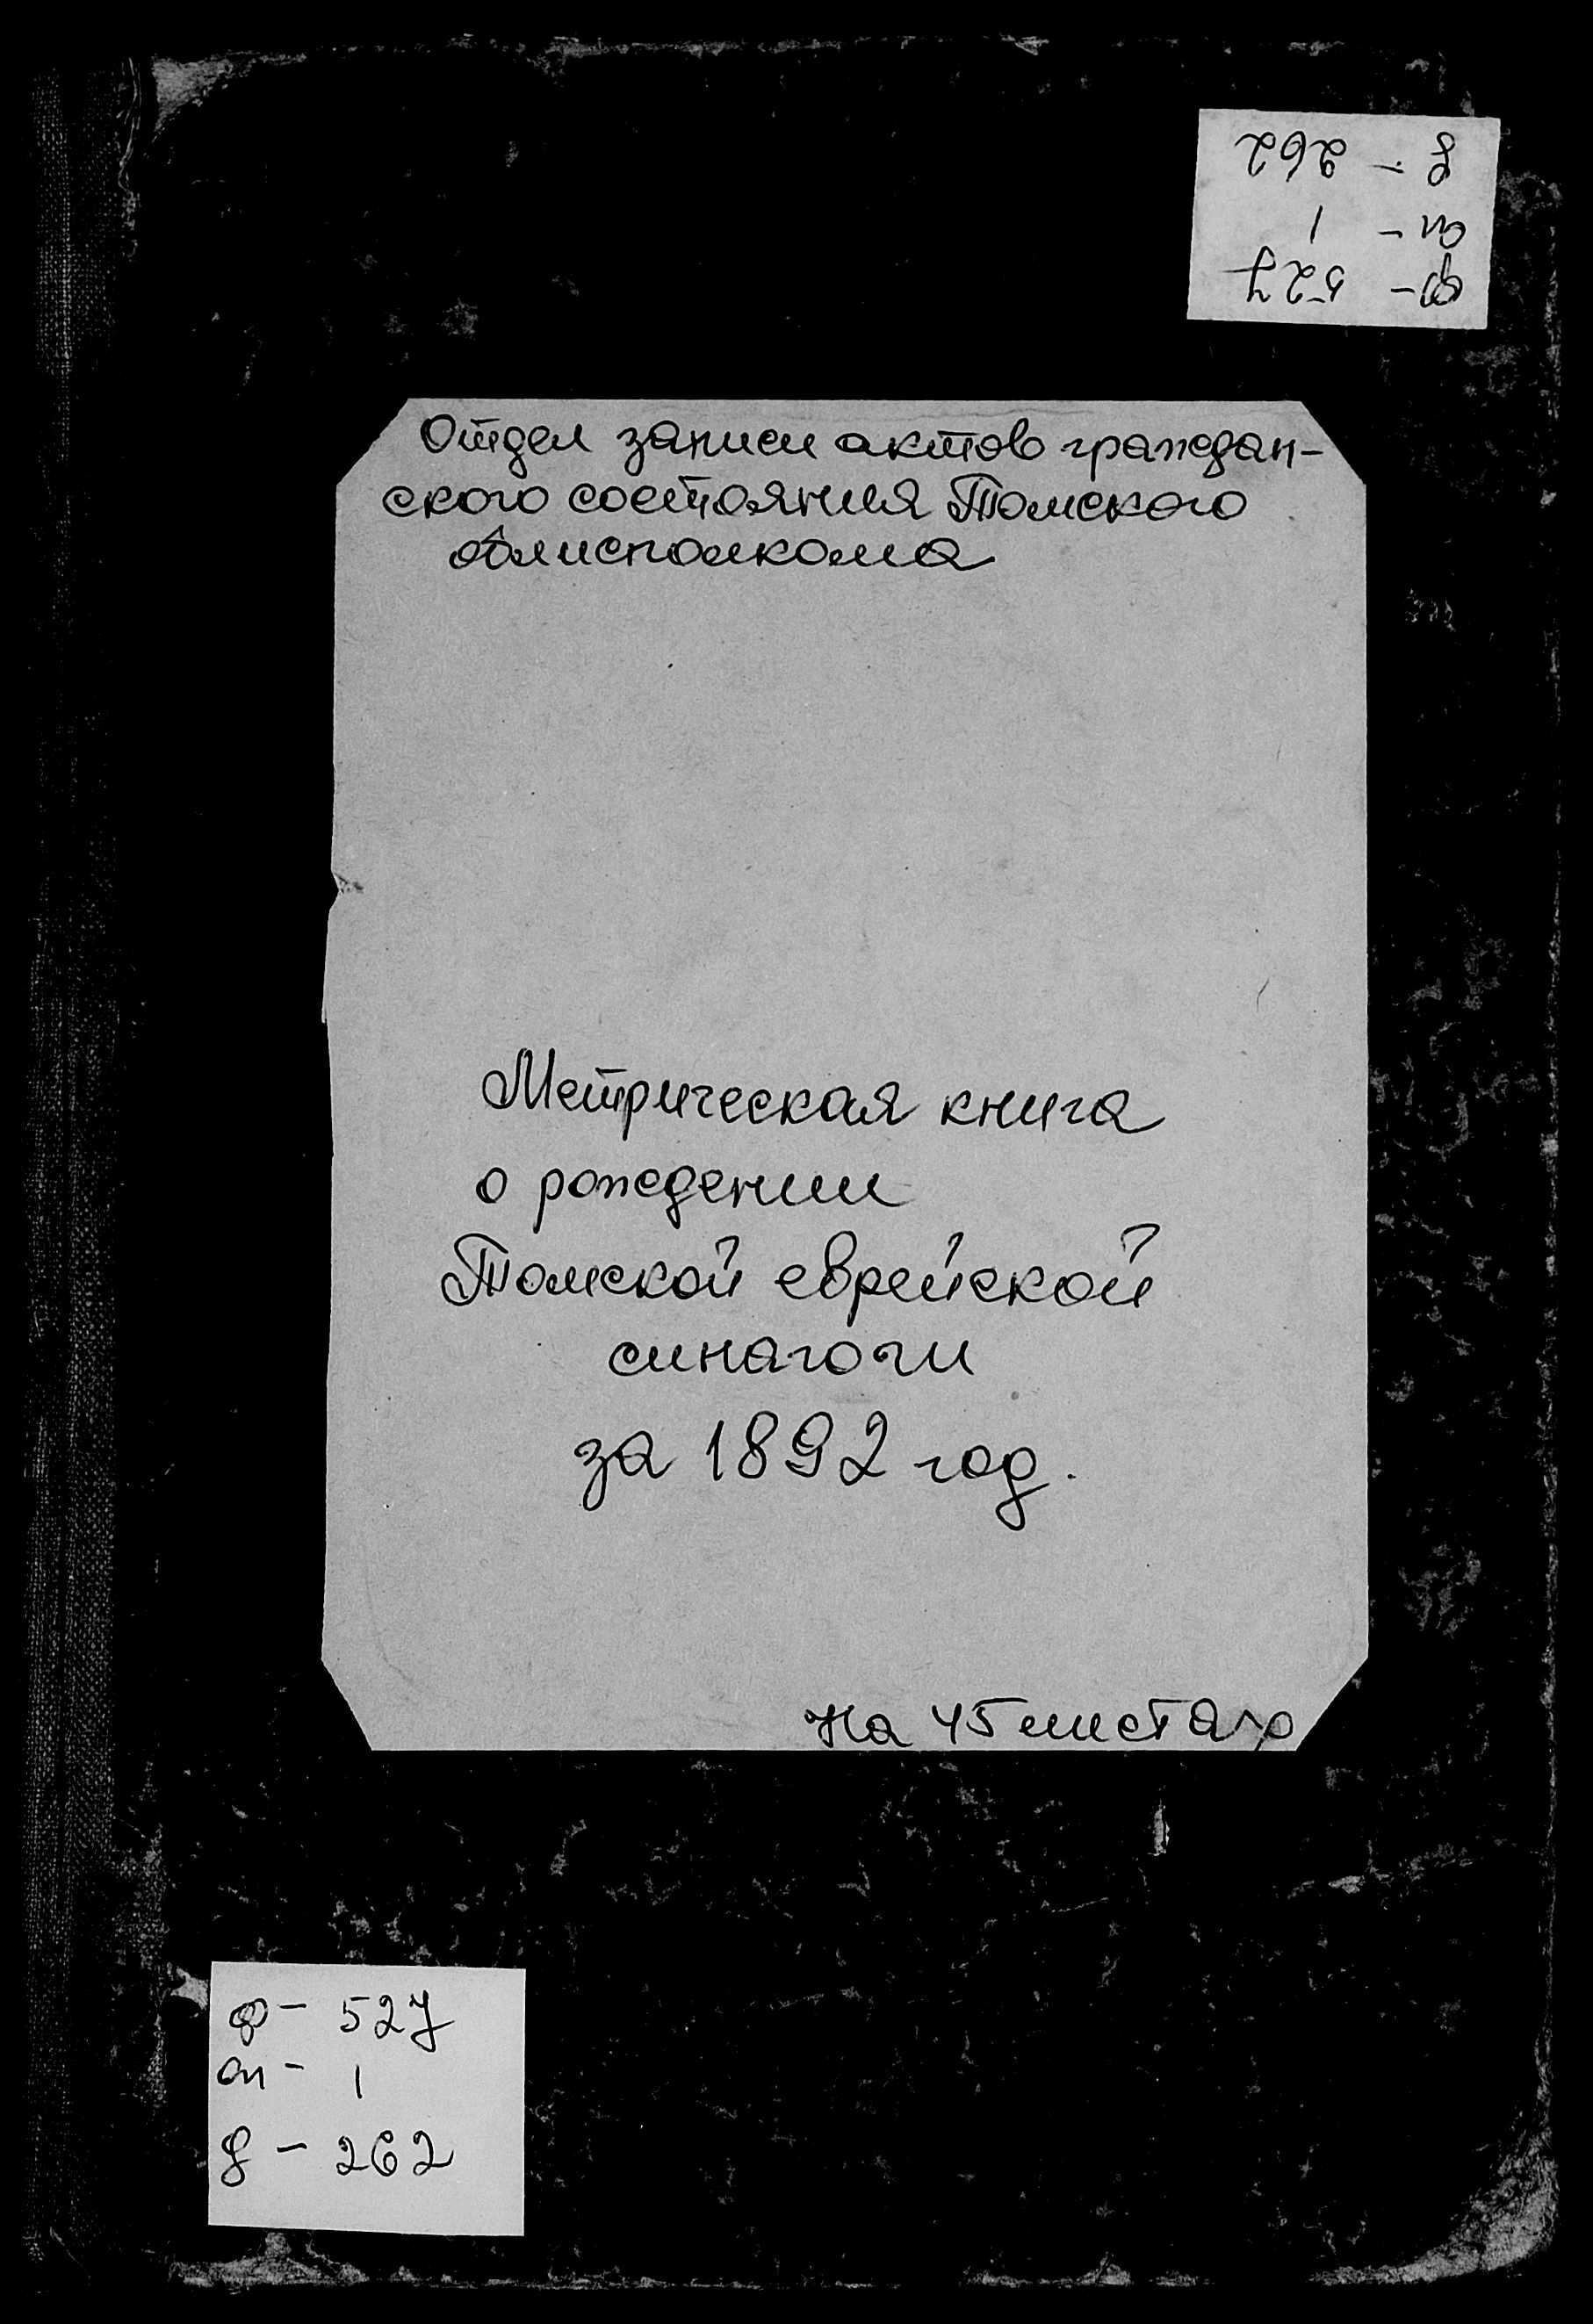 д - 262
оп - 1
ф - 527
Отдел записи актов граждан-
ского состояния Томского
облисполкома
Метрическая книга
о рождении
Томской еврейской
синагоги
за 1892 год.
На 45 листах
ф - 527
оп - 1
д - 262